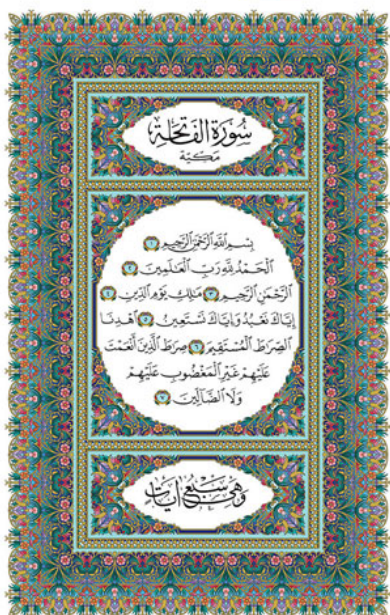 سُورَةُ الفَاتِحَةِ
مَكِّيَّة
بِسْمِ ٱللَّهِ ٱلرَّحْمَٰنِ ٱلرَّحِيمِ ١
ٱلْحَمْدُ لِلَّهِ رَبِّ ٱلْعَٰلَمِينَ ٢
ٱلرَّحْمَٰنِ ٱلرَّحِيمِ ٣ مَٰلِكِ يَوْمِ ٱلدِّينِ ٤
إِيَّاكَ نَعْبُدُ وَإِيَّاكَ نَسْتَعِينُ ٥ ٱهْدِنَا
ٱلصِّرَٰطَ ٱلْمُسْتَقِيمَ ٦ صِرَٰطَ ٱلَّذِينَ أَنْعَمْتَ
عَلَيْهِمْ غَيْرِ ٱلْمَغْضُوبِ عَلَيْهِمْ
وَلَا ٱلضَّآلِّينَ ٧
وَهِيَ سَبْعُ آيَاتٍ